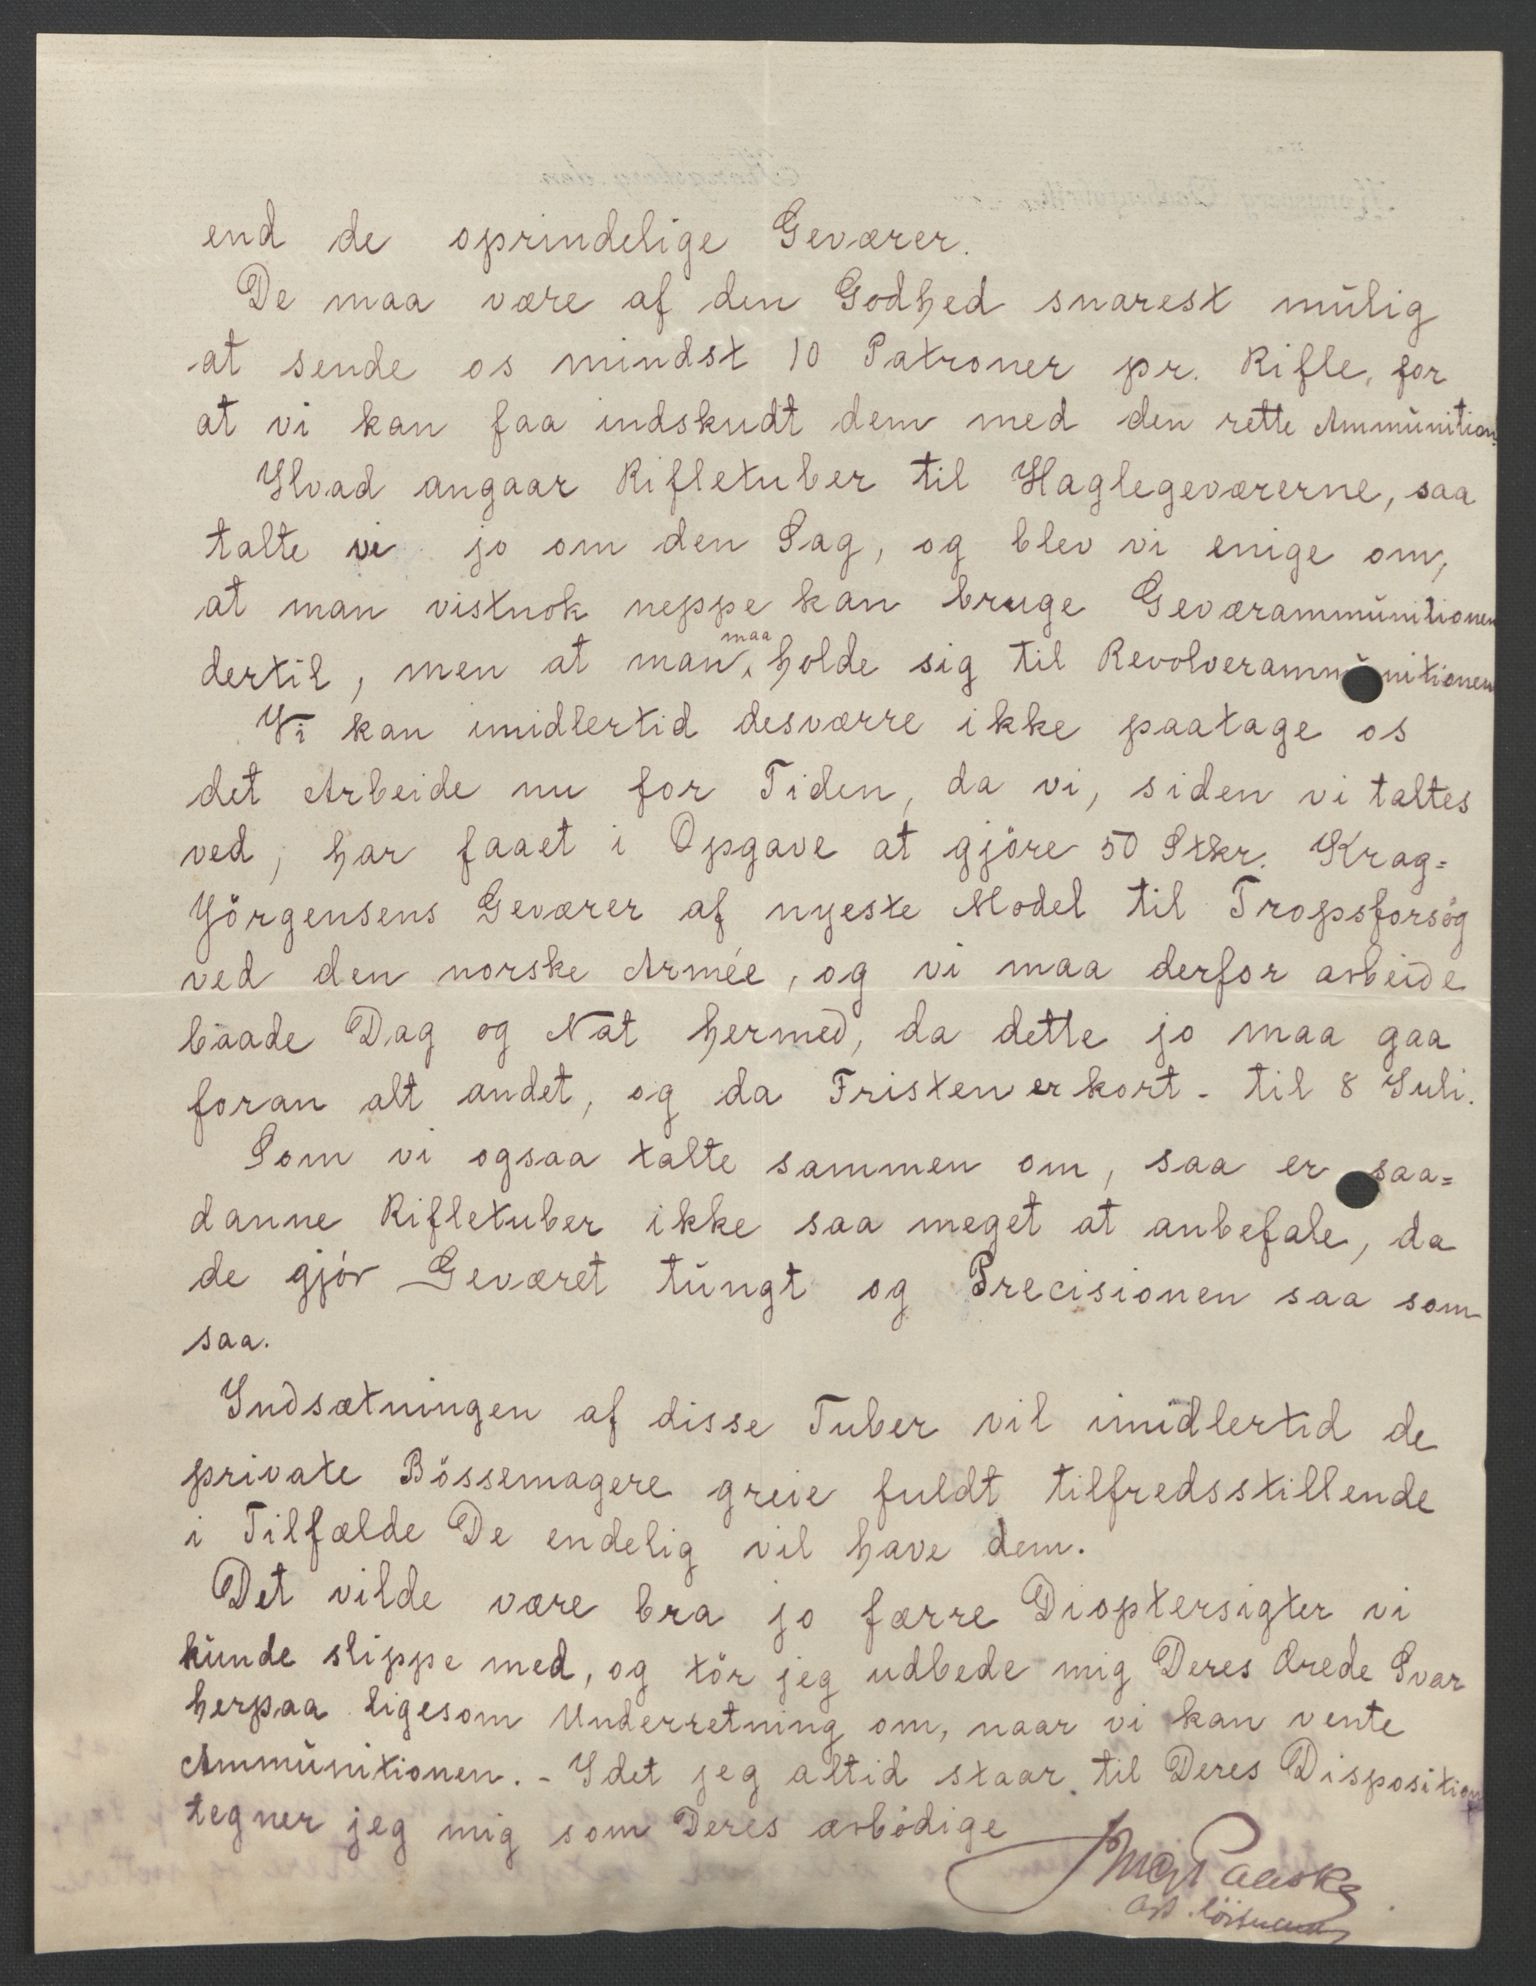 end de oprindelige Geværer.
De maa være af den Godhed snarest mulig
at sende os mindst 10 Patroner pr. Rifle, for
at vi kan faa indskudt dem med den rette Ammunition.
Hvad angaar Rifletuber til Haglegeværerne, saa
talte vi jo om den Sag, og blev vi enige om,
at man vistnok neppe kan bruge Geværammunitionen
dertil, men at man maa holde sig til Revolverammunitionen
Vi kan imidlertid desværre ikke paatage os
det Arbeide nu for Tiden, da vi, siden vi taltes
ved, har faaet i Opgave at gjöre 50 Stkr. Krag=
Jörgensens Geværer af nyeste Model til Tropsforsög
ved den norske Armée, og vi maa derfor arbeide
baade Dag og Nat hermed, da dette jo maa gaa
foran alt andet, og da Fristen er kort - til 8 Juli.
Som vi ogsaa talte sammen om, saa er saa=
danne Rifletuber ikke saa meget at anbefale, da
de gjör Geværet tungt og Precisionen saa som
saa.
Indsætningen af disse Tuber vil imidlertid de
private Bössemagere greie fuldt tilfredsstillende
i Tilfælde De endelig vil have dem.
Det vilde være bra jo færre Dioptersigter vi
kunde slippe med, og tör jeg udbede mig Deres ærede Svar
herpaa ligesom Underretning om, naar vi kan vente
Ammunitionen. - Idet jeg altid staar til Deres Disposition
tegner jeg mig som Deres ærbödige